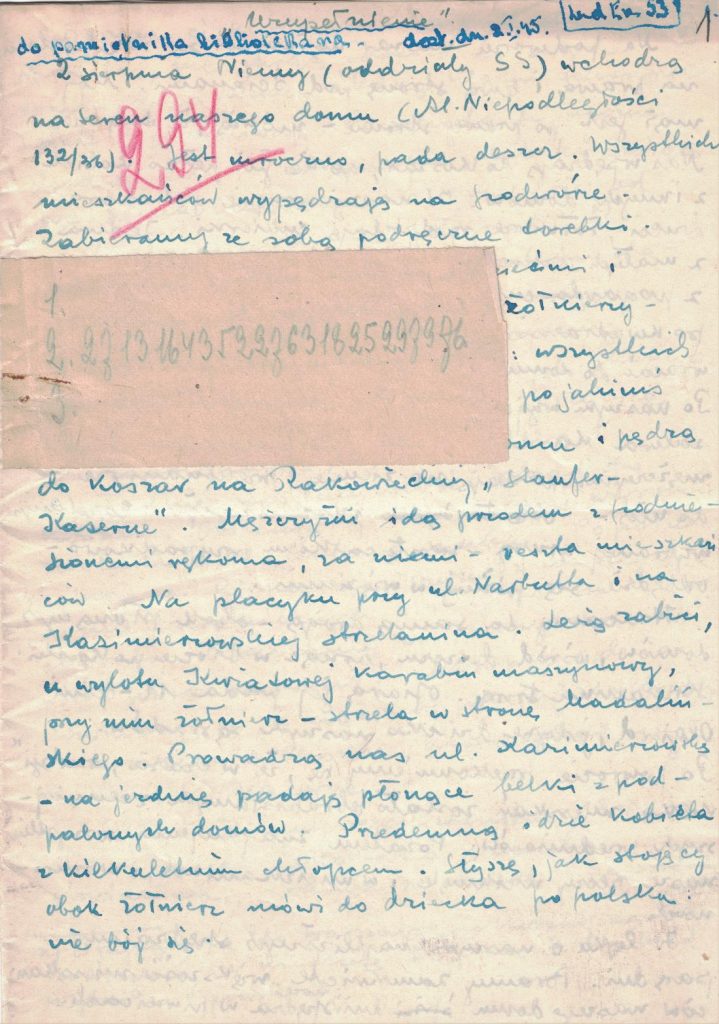 "Uzupełnienie".
do pamiętnika bibliotekarza. dost. dn. 2.I.45.
1
2 sierpnia Niemcy (oddziały SS) wchodzą
na teren naszego domu (Al. Niepodległości
132/36). Jest mroczno, pada deszcz. Wszystkich
224
mieszkańców wypędzają na podwórze.
Zabieramy ze sobą podręczne torebki.
żołnierzy-
: wszystkich
po jakimś
omu i pędzą
1.
2. 27 13 16 43 52 2763 1825 29 39 76
3.
do koszar na Rakowieckiej „Staufer-
Kaserne". Mężczyźni idą przodem z podnie-
sionemi rękoma, za niemi - reszta mieszkań
ców Na placyku przy ul. Narbutta i na
Kazimierzowskiej strzelanina. Leżą zabici,
u wylotu Kwiatowej karabin maszynowy,
przy nim żołnierz - strzela w stronę Madaliń-
skiego. Prowadzą nas ul. Kazimierzowską
- na jezdnię padają płonące belki z pod-
palonych domów. Przedemną idzie kobieta
z kilkuletnim chłopcem. Słyszę, jak stojący
obok żołnierz mówi do dziecka po polsku:
nie bój się.